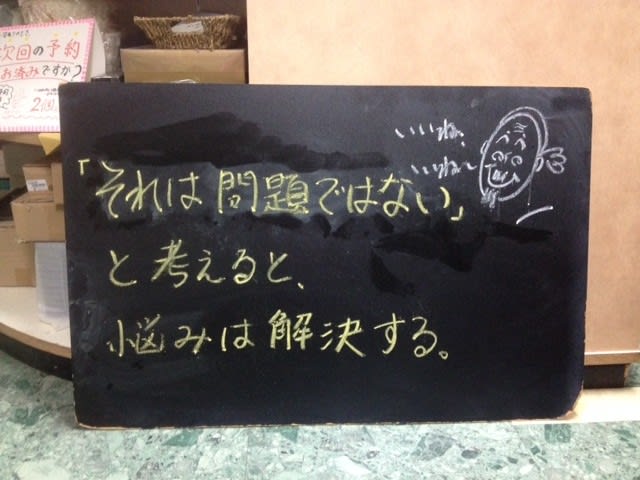 次回の予約
お済みですか?
「それは問題ではない」
と考えると、
悩みは解決する。
いいね、
いいね〜